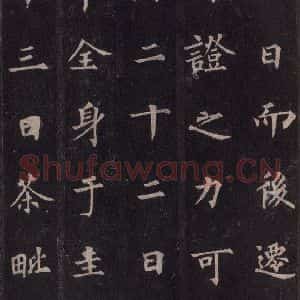 日而後遷
證之力可
二十二日
全身于圭
三日茶毗
Shufawang.CN